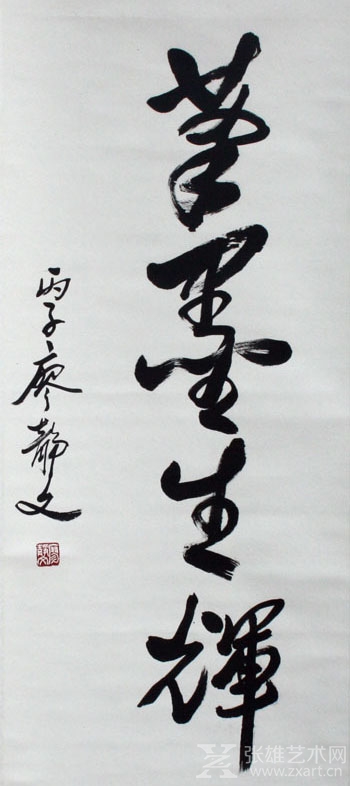 筆墨生輝
丙子 廖靜文
张雄艺术网
www.zxart.cn